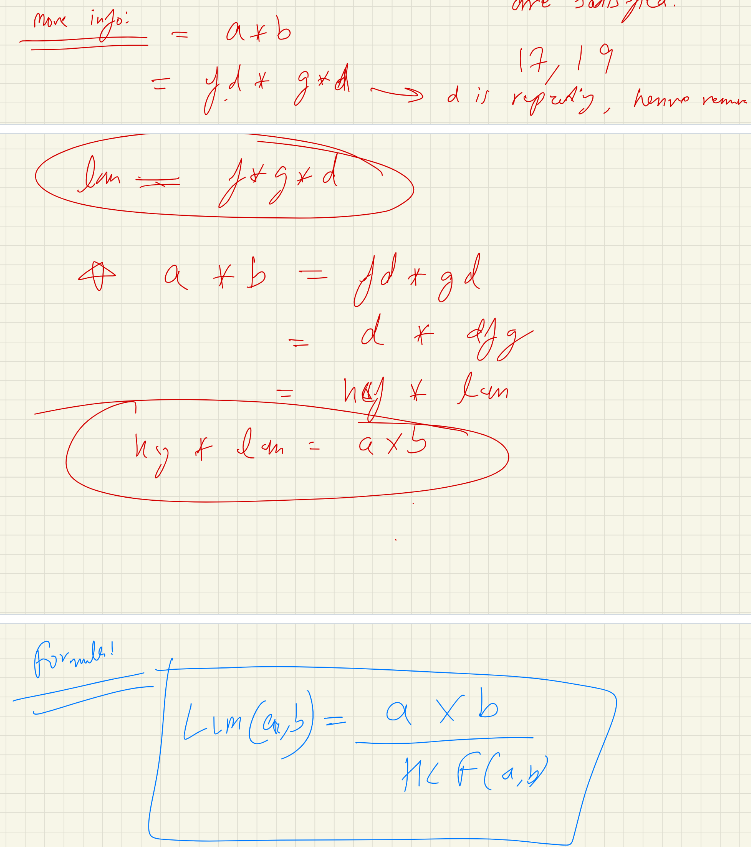 are satisfied.
More info:
= a * b
17, 19
= f.d * g * d → d is repeating, hence remov
lcm = f * g * d
a * b = fd * gd
= d * dfg
= hcf * lcm
hcf * lcm = a × b
Formula!
Lcm(a,b) = a × b
HCF(a,b)